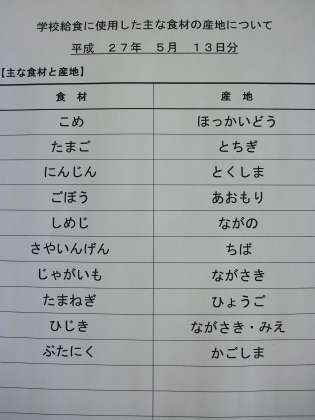 学校給食に使用した主な食材の産地について
平成　２７年　５月　１３日分
【主な食材と産地】
食　材　産　地
こめ　ほっかいどう
たまご　とちぎ
にんじん　とくしま
ごぼう　あおもり
しめじ　ながの
さやいんげん　ちば
じゃがいも　ながさき
たまねぎ　ひょうご
ひじき　ながさき・みえ
ぶたにく　かごしま